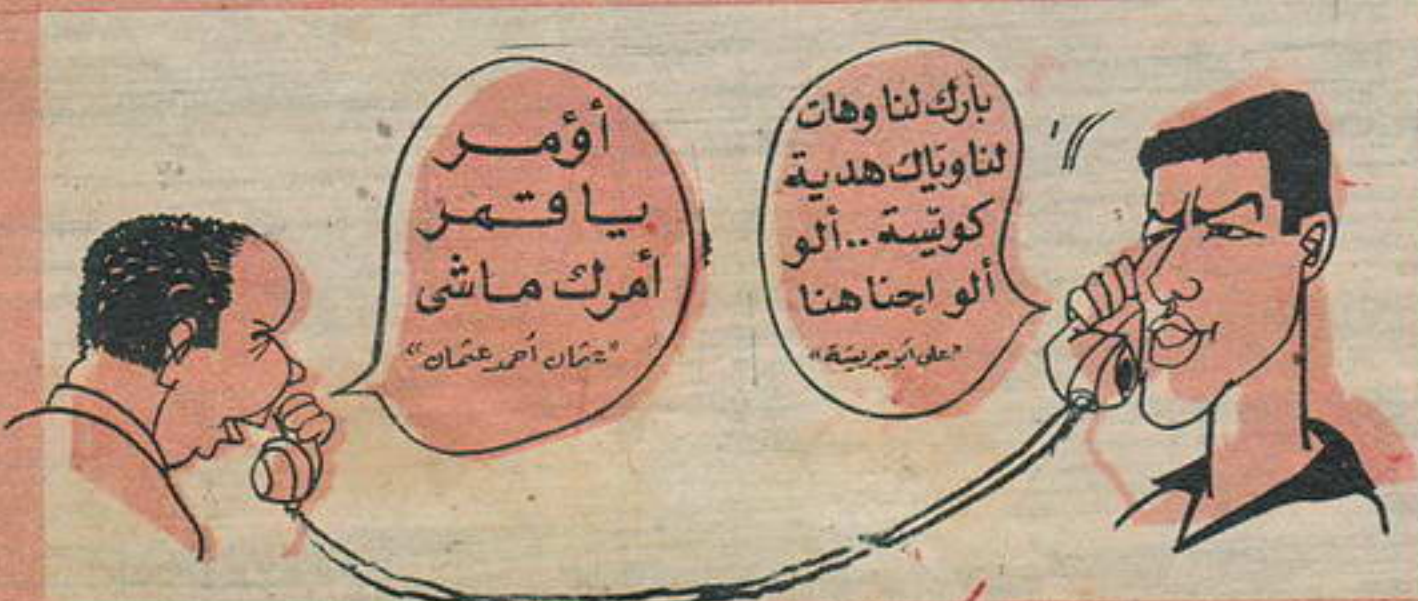 بارك لنا وهات
لنا وياك هدية
كويسة..ألو
ألو إحنا هنا
"على أبو جريشة"
أؤمــر
يــا قــمــر
أمرك مــاشى
"عثمان أحمد عثمان"